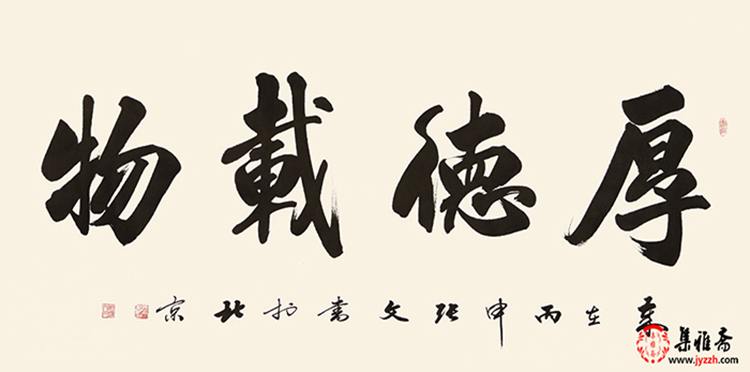 厚德載物
歲在丙申張文書於北京
集雅斋
www.jyzzh.com